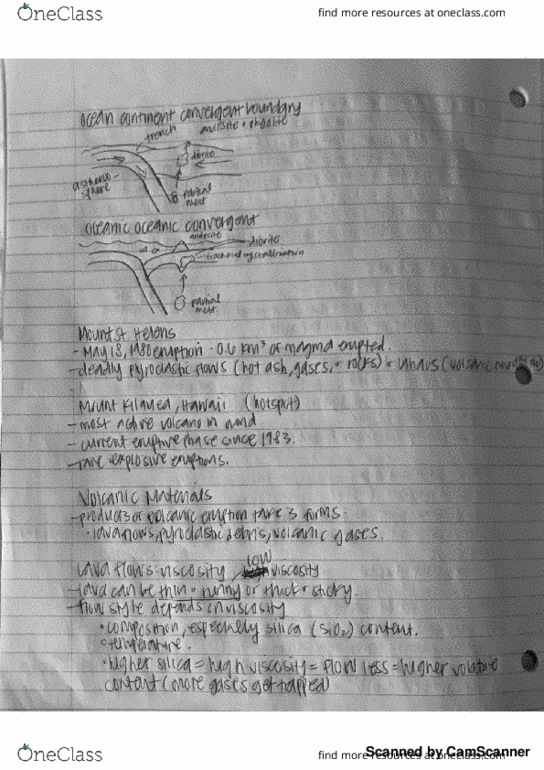 OneClass
find more resources at oneclass.com
ocean continent convergent boundary
trench andesite + rhyolite
diorite
astheno-
sphere
partial
melt
oceanic oceanic convergent
andesite
diorite
fractional crystallization
partial
melt
Mount St Helens
- May 18, 1980 eruption · 0.6 km³ of magma erupted.
- deadly pyroclastic flows (hot ash, gases, + rocks) + lahars (volcanic mudflow)
Mount Kilauea, Hawaii (hotspot)
- most active volcano in world
- current eruptive phase since 1983.
- rare explosive eruptions.
Volcanic Materials
- products of volcanic eruption take 3 forms:
· lava flows, pyroclastic debris, volcanic gases.
low
lava flows: viscosity viscosity
- lava can be thin + runny or thick + sticky.
- flow style depends on viscosity
• composition, especially silica (SiO₂) content.
• temperature.
• higher silica = high viscosity = flow less = higher volatile
content (more gases get trapped)
OneClass
find more resources at oneclass.com
Scanned by CamScanner